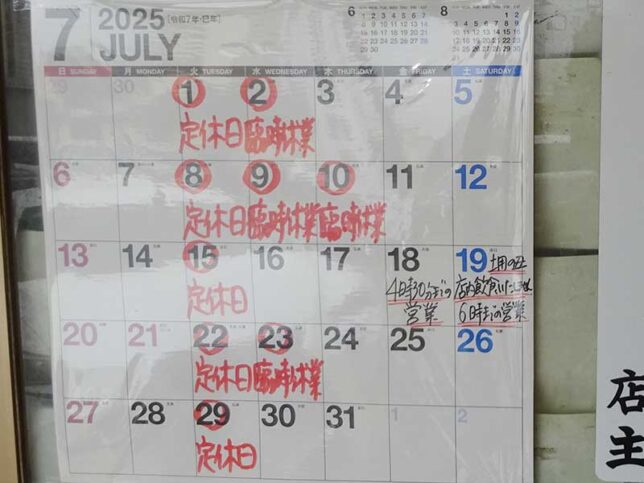 7 2025 [令和7年・巳年]
JULY
6
8
日 SUNDAY 月 MONDAY 火 TUESDAY 水 WEDNESDAY 木 THURSDAY 金 FRIDAY 土 SATURDAY
29 30 1 2 3 4 5
定休日 臨時休業
6 7 8 9 10 11 12
定休日 臨時休業 臨時休業
13 14 15 16 17 18 19 土用の丑
定休日 4時30分までの 店内飲食いたしません
営業 6時までの営業
20 21 22 23 24 25 26
定休日 臨時休業
27 28 29 30 31 1 2
定休日
店主